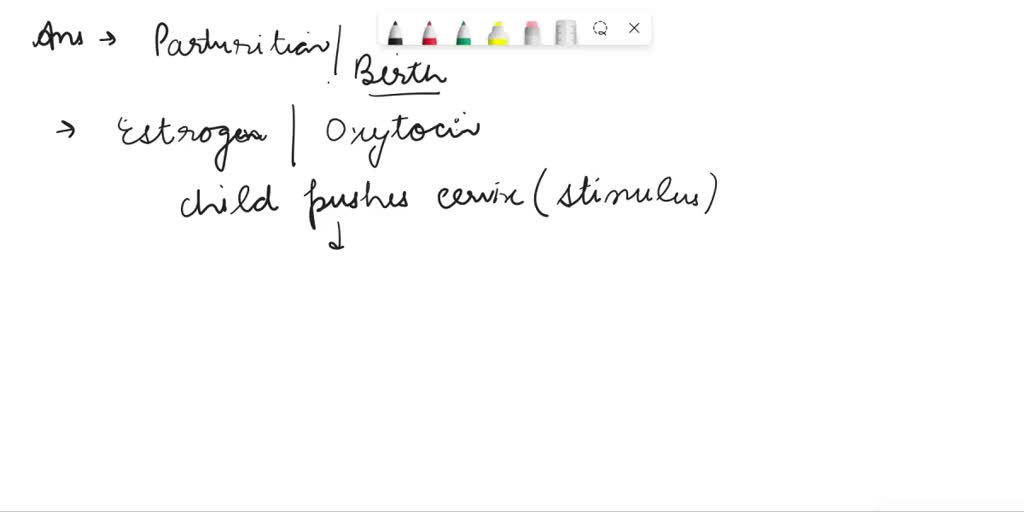 Ans → Parturition/
Birth
→ Estrogen | Oxytocin
child pushes cervix (stimulus)
↓